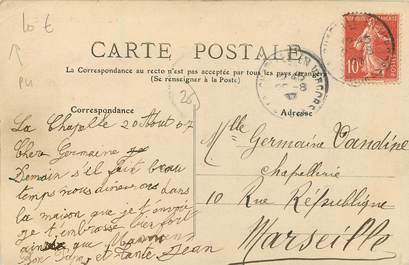 Lot
CARTE POSTALE
La Correspondance au recto n'est pas acceptée par tous les pays étrangers
(Se renseigner à la Poste)
Correspondance
Adresse
10
La Chapelle 20 Août 07
Chère Germaine
Demain s'il fait beau
temps nous dinerons dans
la maison que je t'envoie
je t'embrasse bien fort
ainsi que Maman
Bon Papa et tante Jean
Mlle Germaine Vandine
Chapellerie
10 Rue République
Marseille